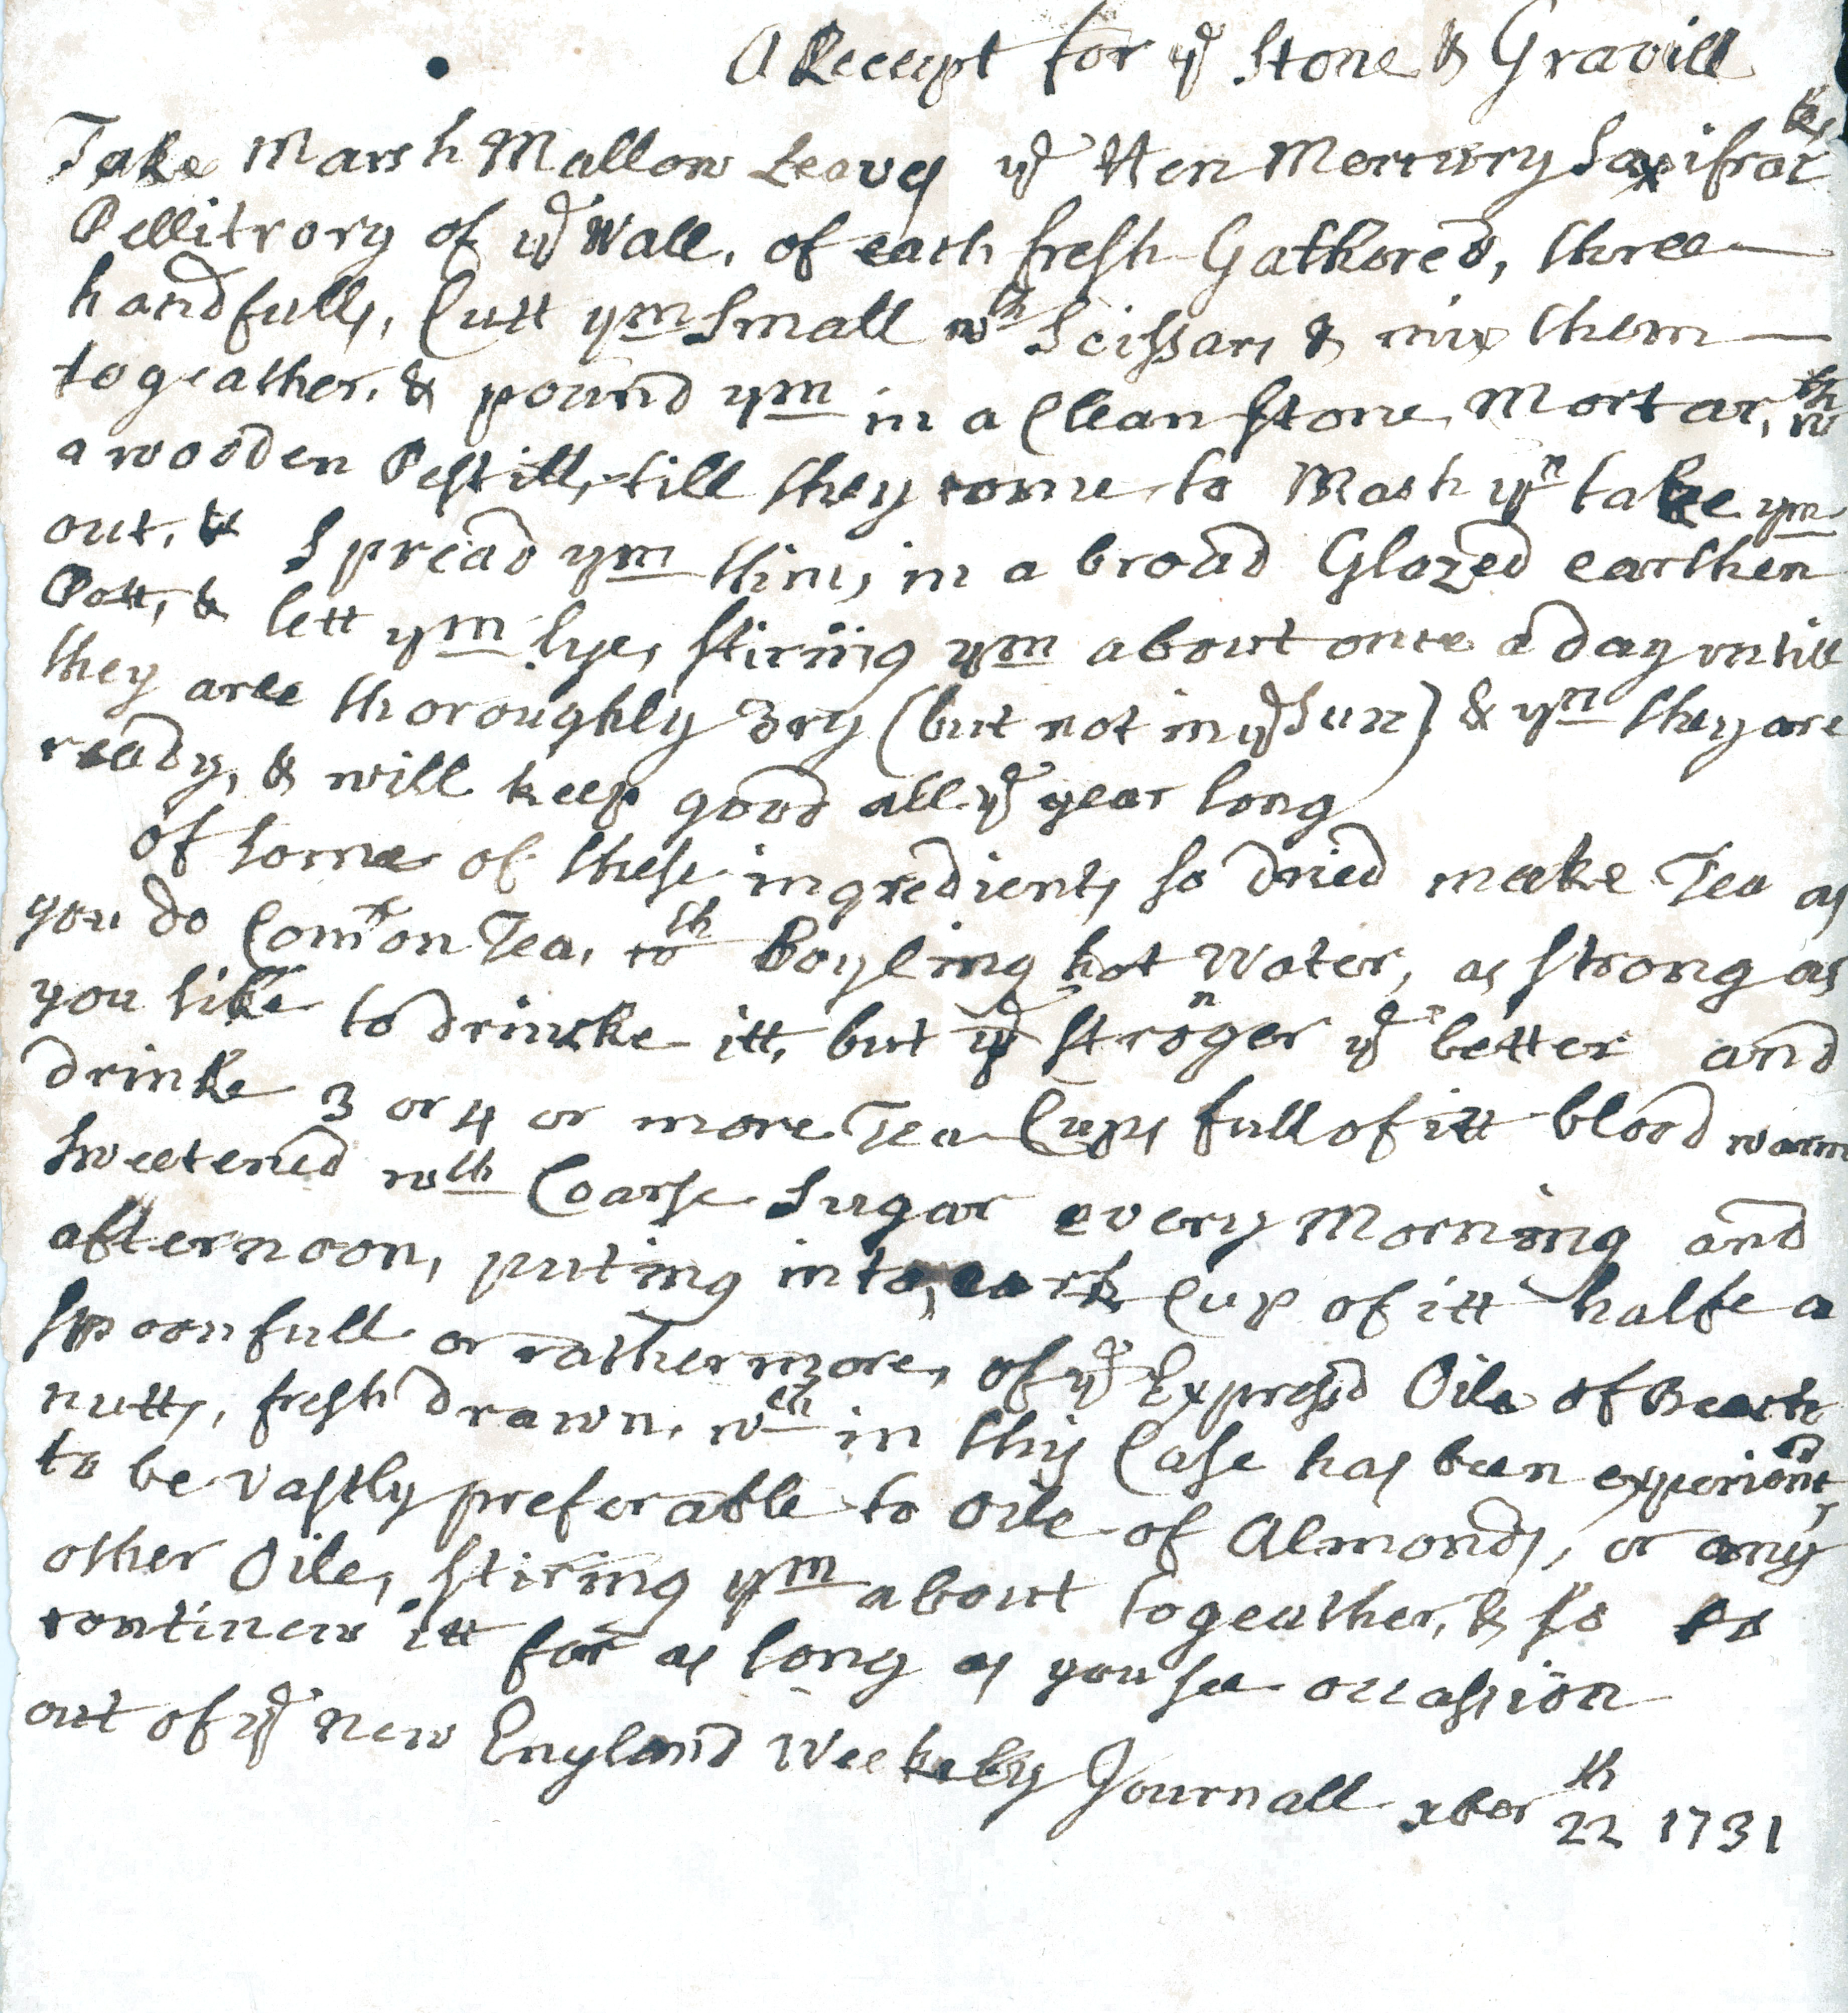 A Receipt for ye Stone & Gravill
Take Marsh Mallow Leaves ye Hen Mercury Saxifrac &
Pellitrory of ye Wall, of each fresh Gathored, three
handfulls, Cutt ym Small wth Scissars & mix them
togeather, & pound ym in a Clean Stone Mortar, wth
a wooden Pestill, till they come to Mash yn take ym
out, & Spread ym thin, in a broad Glazed earthen
Pott, & lett ym lye, stiring ym about once a day untill
they aree thoroughly dry (but not in ye Sun) & yn they are
ready, & will keep good all ye year long
of some of these ingredients so dried make Tea as
you do Common Tea, wth Boyling hot Water, as strong as
you like to drinke itt, but ye stronger ye better and
drinke 3 or 4 or more Tea Cups full of itt blood warm
sweetened wth Coarse Sugar every Morning and
afternoon, puting into each Cup of itt halfe a
spoonfull or rather more, of ye Expressd Oile of Beech
nutts, fresh drawn, wch in this Case has been experiencd
to be vastly preferable to Oile of Almonds, or any
other Oile, stiring ym about togeather, & so to
continew itt for as long as you see occassion
out of ye New England Weekely Journall xber 22th 1731